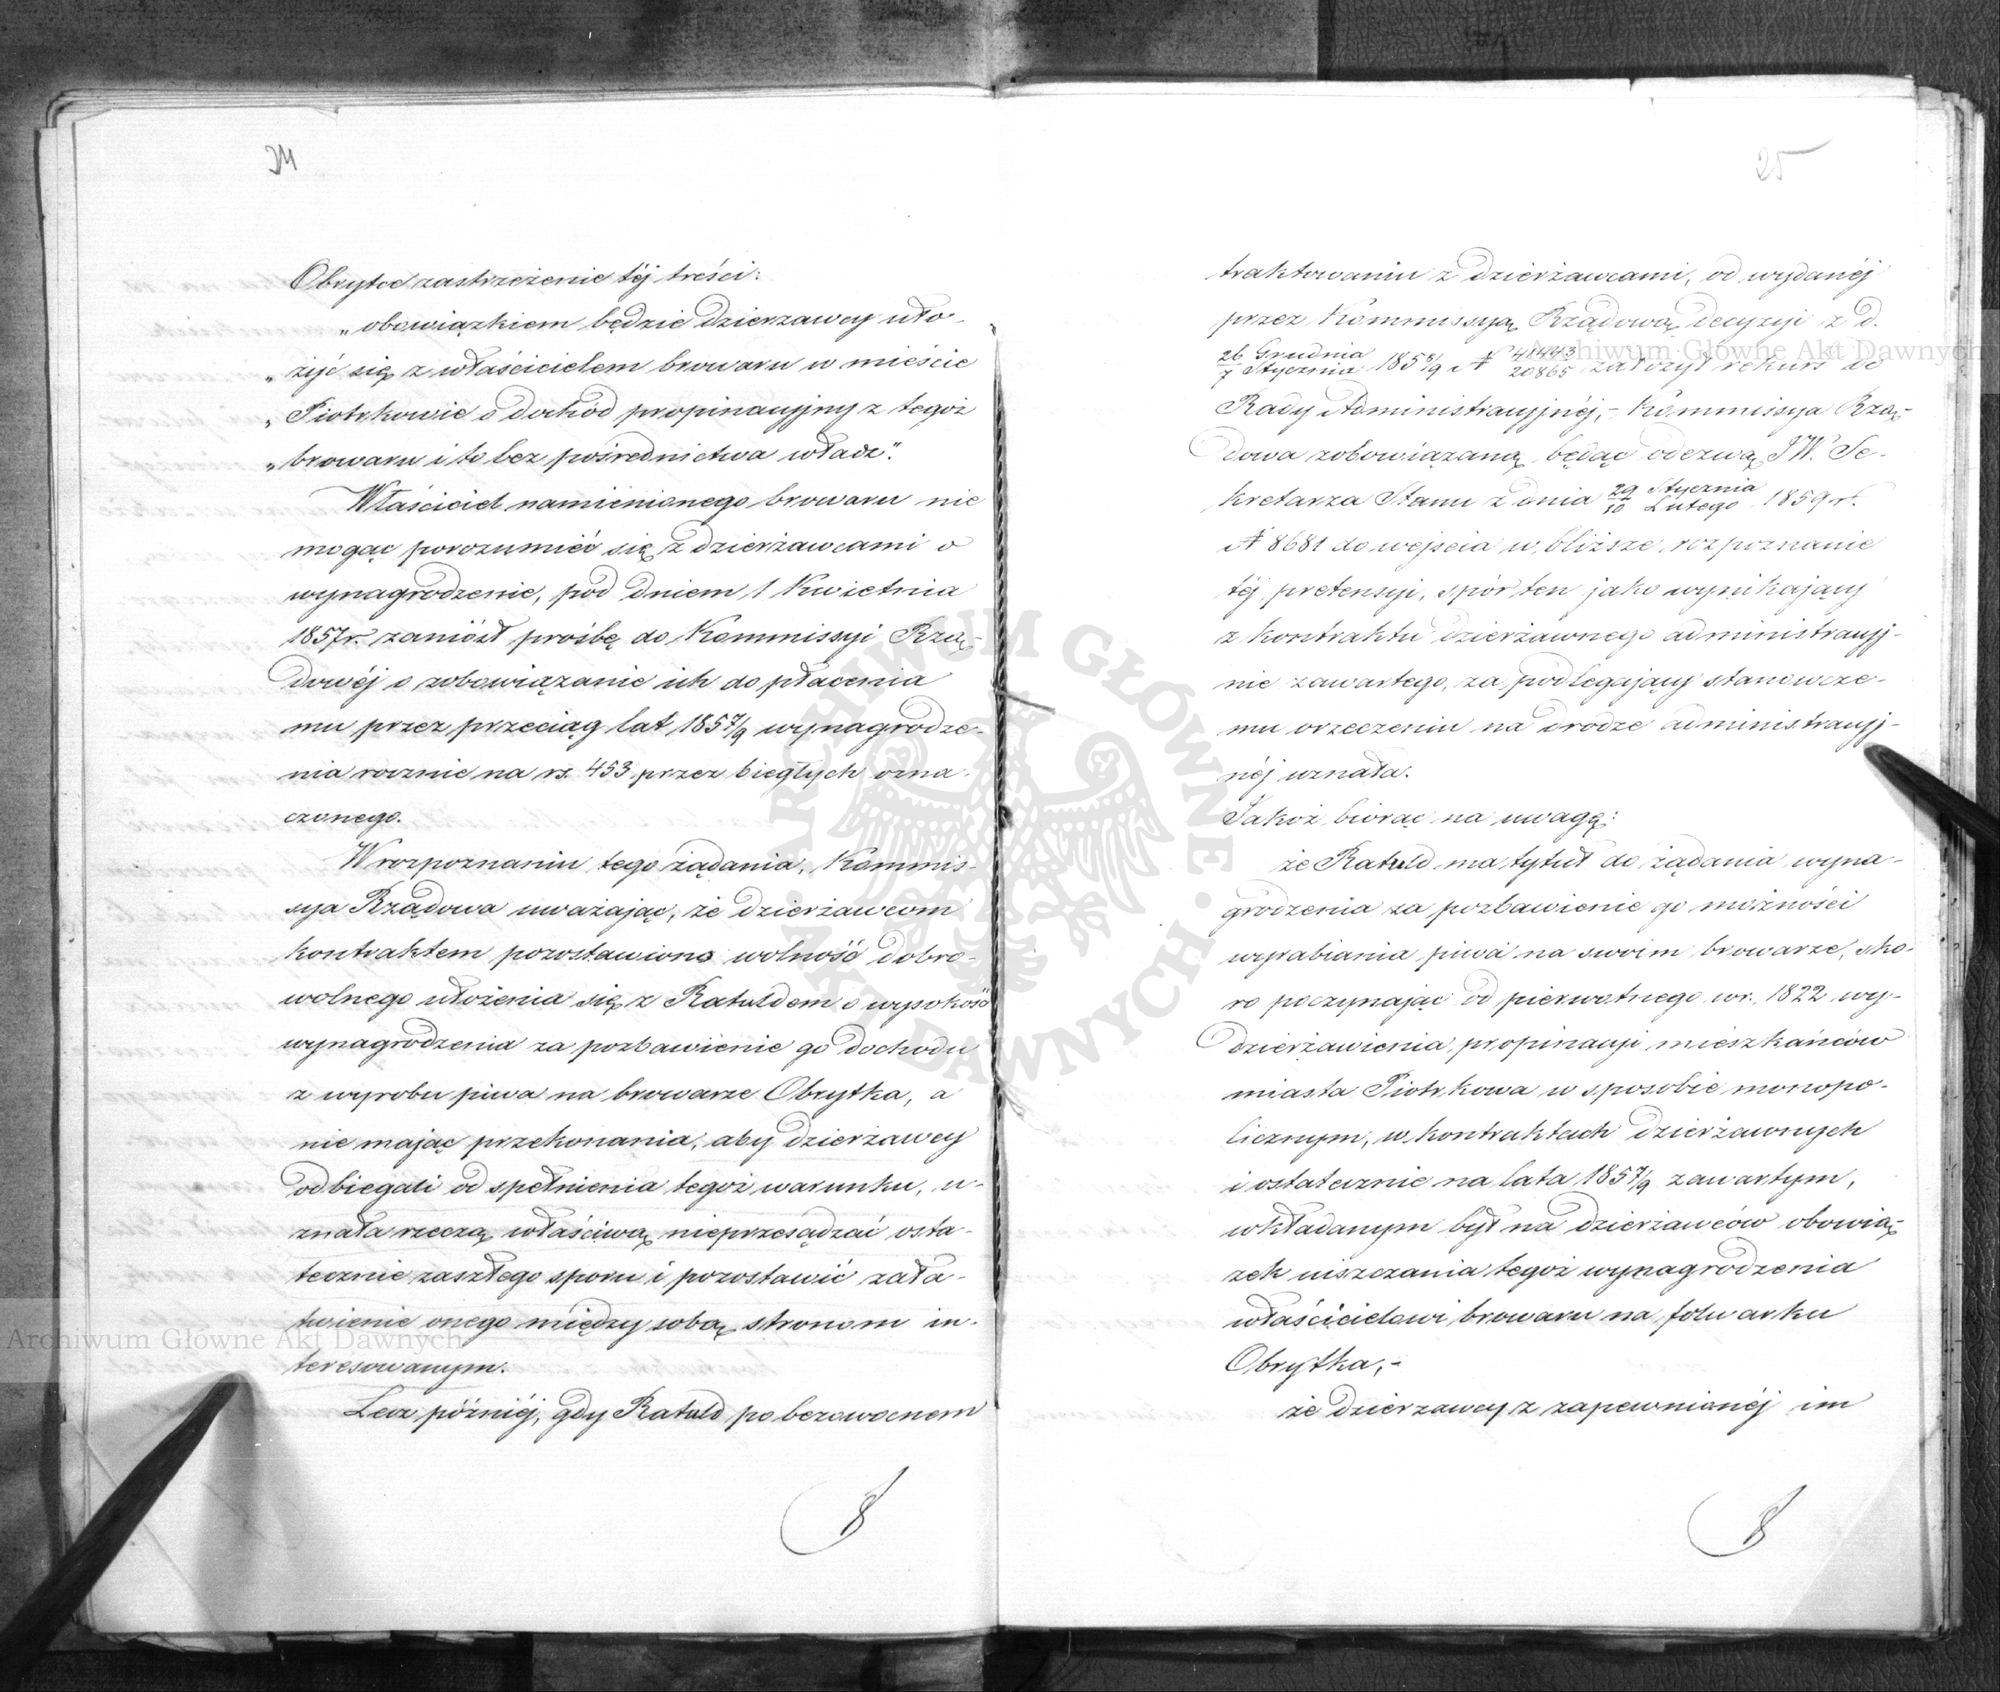 24
Obrytce zastrzeżenie téj treści:
„obowiązkiem będzie dzierzawcy uło-
„żyć się z właścicielem browaru w mieście
„Piotrkowie o dochód propinacyjny z tegoż
„browaru i to bez pośrednictwa władz."
Właściciel namienionego browaru nie
mogąc porozumieć się z dzierżawcami o
wynagrodzenie, pod dniem 1 Kwietnia
1857r. zaniósł prośbę do Kommissyi Rzą-
dowéj o zobowiązanie ich do płacenia
mu przez przeciąg lat 1857/9 wynagrodze-
nia rocznie na rs. 453 przez biegłych ozna-
czonego.
W rozpoznaniu tego żądania, Kommis-
sya Rządowa uważając, że dzierżawcom
kontraktem pozostawiono wolność dobro-
wolnego ułożenia się z Ratuldem o wysokość
wynagrodzenia za pozbawienie go dochodu
z wyrobu piwa na browarze Obrytka, a
nie mając przekonania, aby dzierżawcy
odbiegali od spełnienia tegoż warunku, u-
znała rzeczą właściwą nieprzesądzać osta-
tecznie zaszłego sporu i pozostawić zała-
twienie onego między sobą stronom in-
teresowanym.
Lecz później, gdy Ratuld po bezowocnem
25
traktowaniu z dzierżawcami, od wydanéj
przez Kommissyą Rządową decyzyi z d.
26 Grudnia/7 Stycznia 1858/9 № 41443/20865 założył rekurs do
Rady Administracyjnéj, - Kommissya Rzą-
dowa zobowiązaną będąc odezwą JW. Se-
kretarza Stanu z dnia 29 Stycznia/10 Lutego 1859 r.
№ 8681 do wejścia w bliższe rozpoznanie
téj pretensyi, spór ten jako wynikający
z kontraktu dzierżawnego administracyj-
nie zawartego, za podlegający stanowcze-
mu orzeczeniu na drodze administracyj-
néj uznała.
Jakoż biorąc na uwagę:
że Ratuld ma tytuł do żądania wyna-
grodzenia za pozbawienie go możności
wyrabiania piwa na swoim browarze, sko-
ro poczynając od pierwotnego w r. 1822 wy-
dzierżawienia propinacyi mieszkańców
miasta Piotrkowa w sposobie monopo-
licznym, w kontraktach dzierżawnych
i ostatecznie na lata 1857/9 zawartym,
wkładanym był na dzierżawców obowią-
zek uiszczania tegoż wynagrodzenia
właścicielowi browaru na folwarku
Obrytka, -
że dzierzawcy z zapewnionéj im
Archiwum Główne Akt Dawnych
Archiwum Główne Akt Dawnych
ARCHIWUM GŁÓWNE AKT DAWNYCH